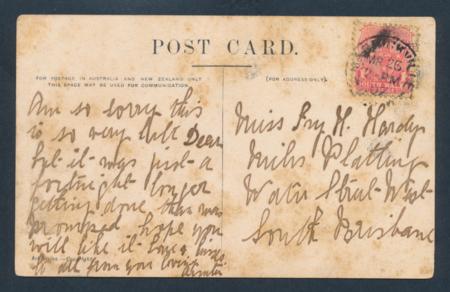 POST CARD.
FOR POSTAGE IN AUSTRALIA AND NEW ZEALAND ONLY
THIS SPACE MAY BE USED FOR COMMUNICATION.
(FOR ADDRESS ONLY)
SOUTH WALES
Am so sorry this
is so very late Dear
but it was just a
fortnight longer
getting done than was
promised hope you
will like it Love &
to all from your loving
Miss Ivy H. Hardy
Miles Platting
Water Street West
South Brisbane